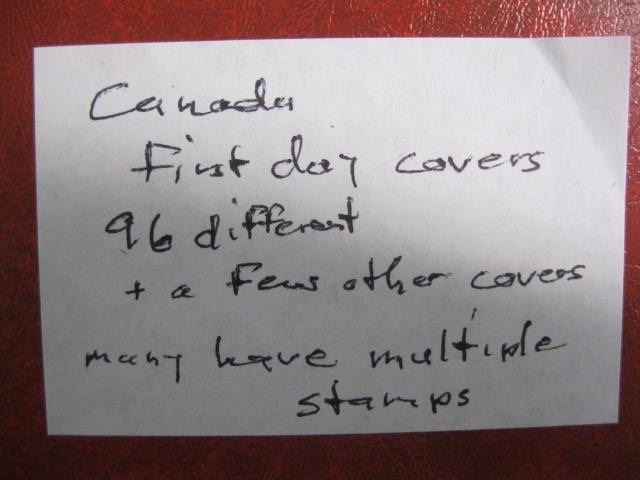 Canada
First day covers
96 different
+ a few other covers
many have multiple
stamps